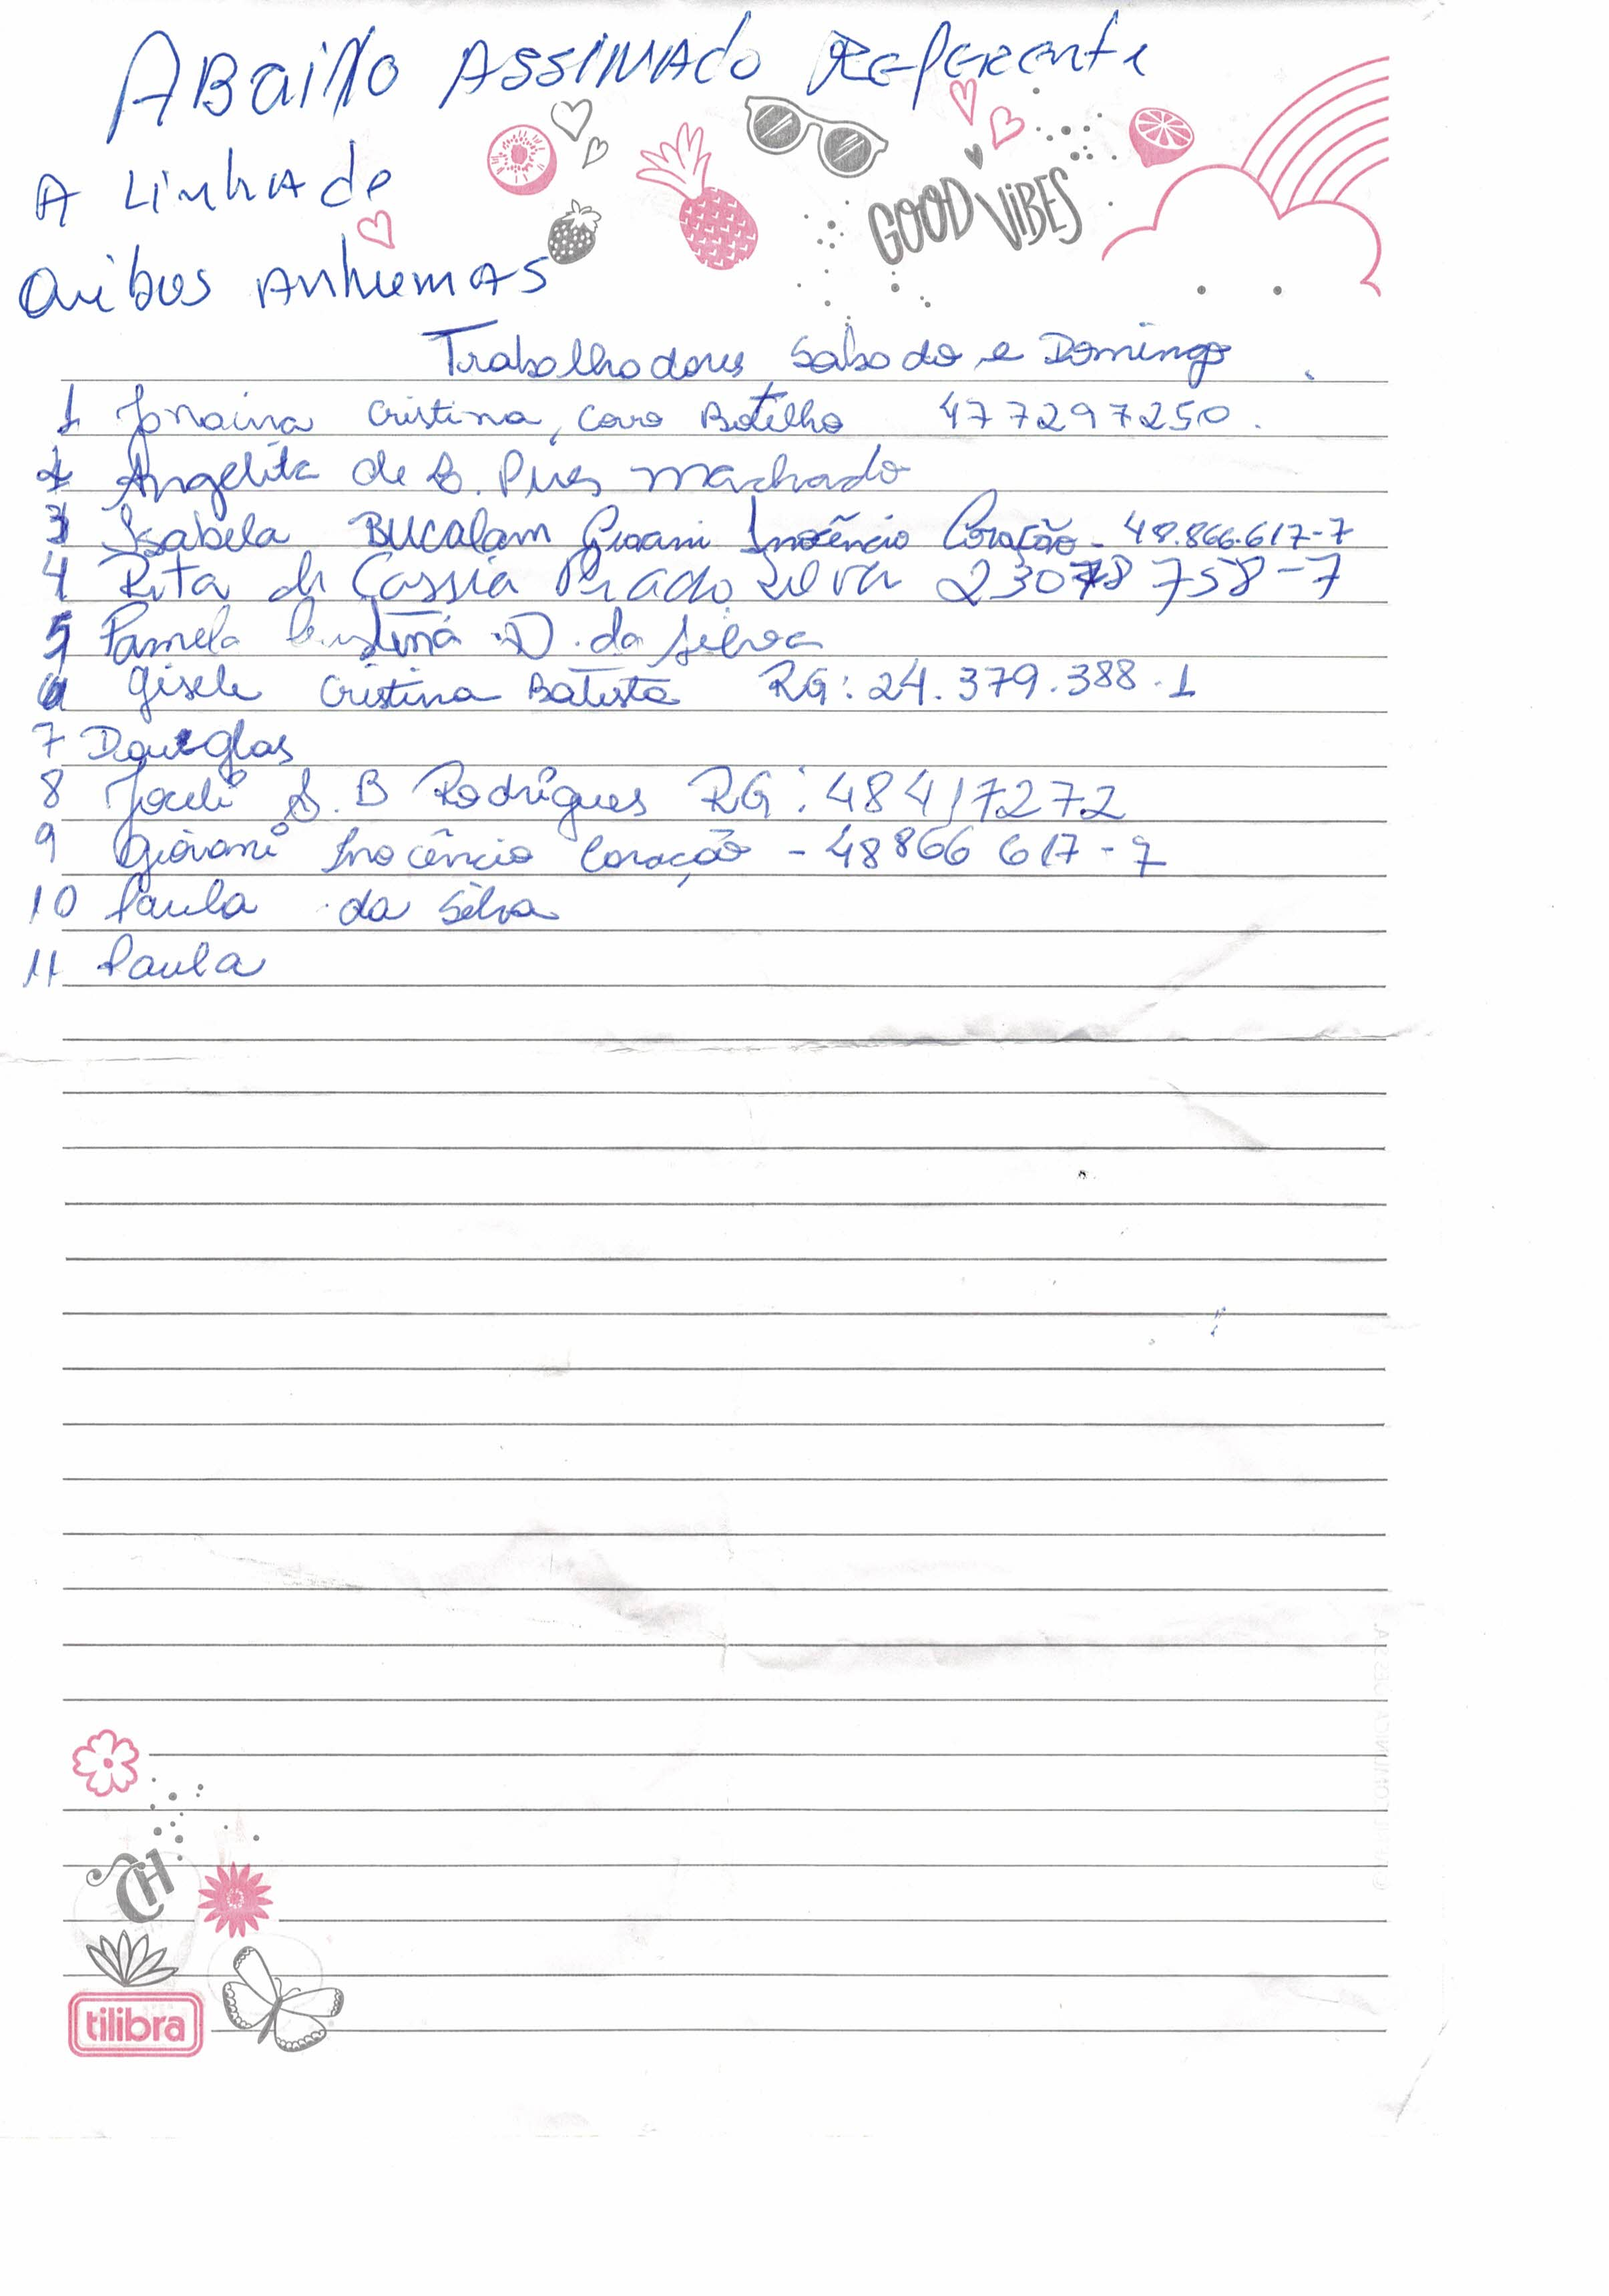 ABaixo ASSINADO Referente
A Linha de
GOOD VIBES
Onibus Anhumas
Trabalhadores Sabado e Domingo
1 Janaina Cristina, Caro Botelho 477297250.
2 Angelita de S. Pires Machado
3 Isabela BUCalam Giovani Inocêncio Coração - 48.866.617-7
4 Rita de Cassia Prado Silva 23078758-7
5 Pamela Cristina D. da Silva
6 Gisele Cristina Batista RG: 24.379.388.1
7 Douglas
8 Joceli S. B Rodrigues RG: 48417272
9 Giovani Inocêncio Coração - 48866617-7
10 Paula da Silva
11 Paula
CH
tilibra